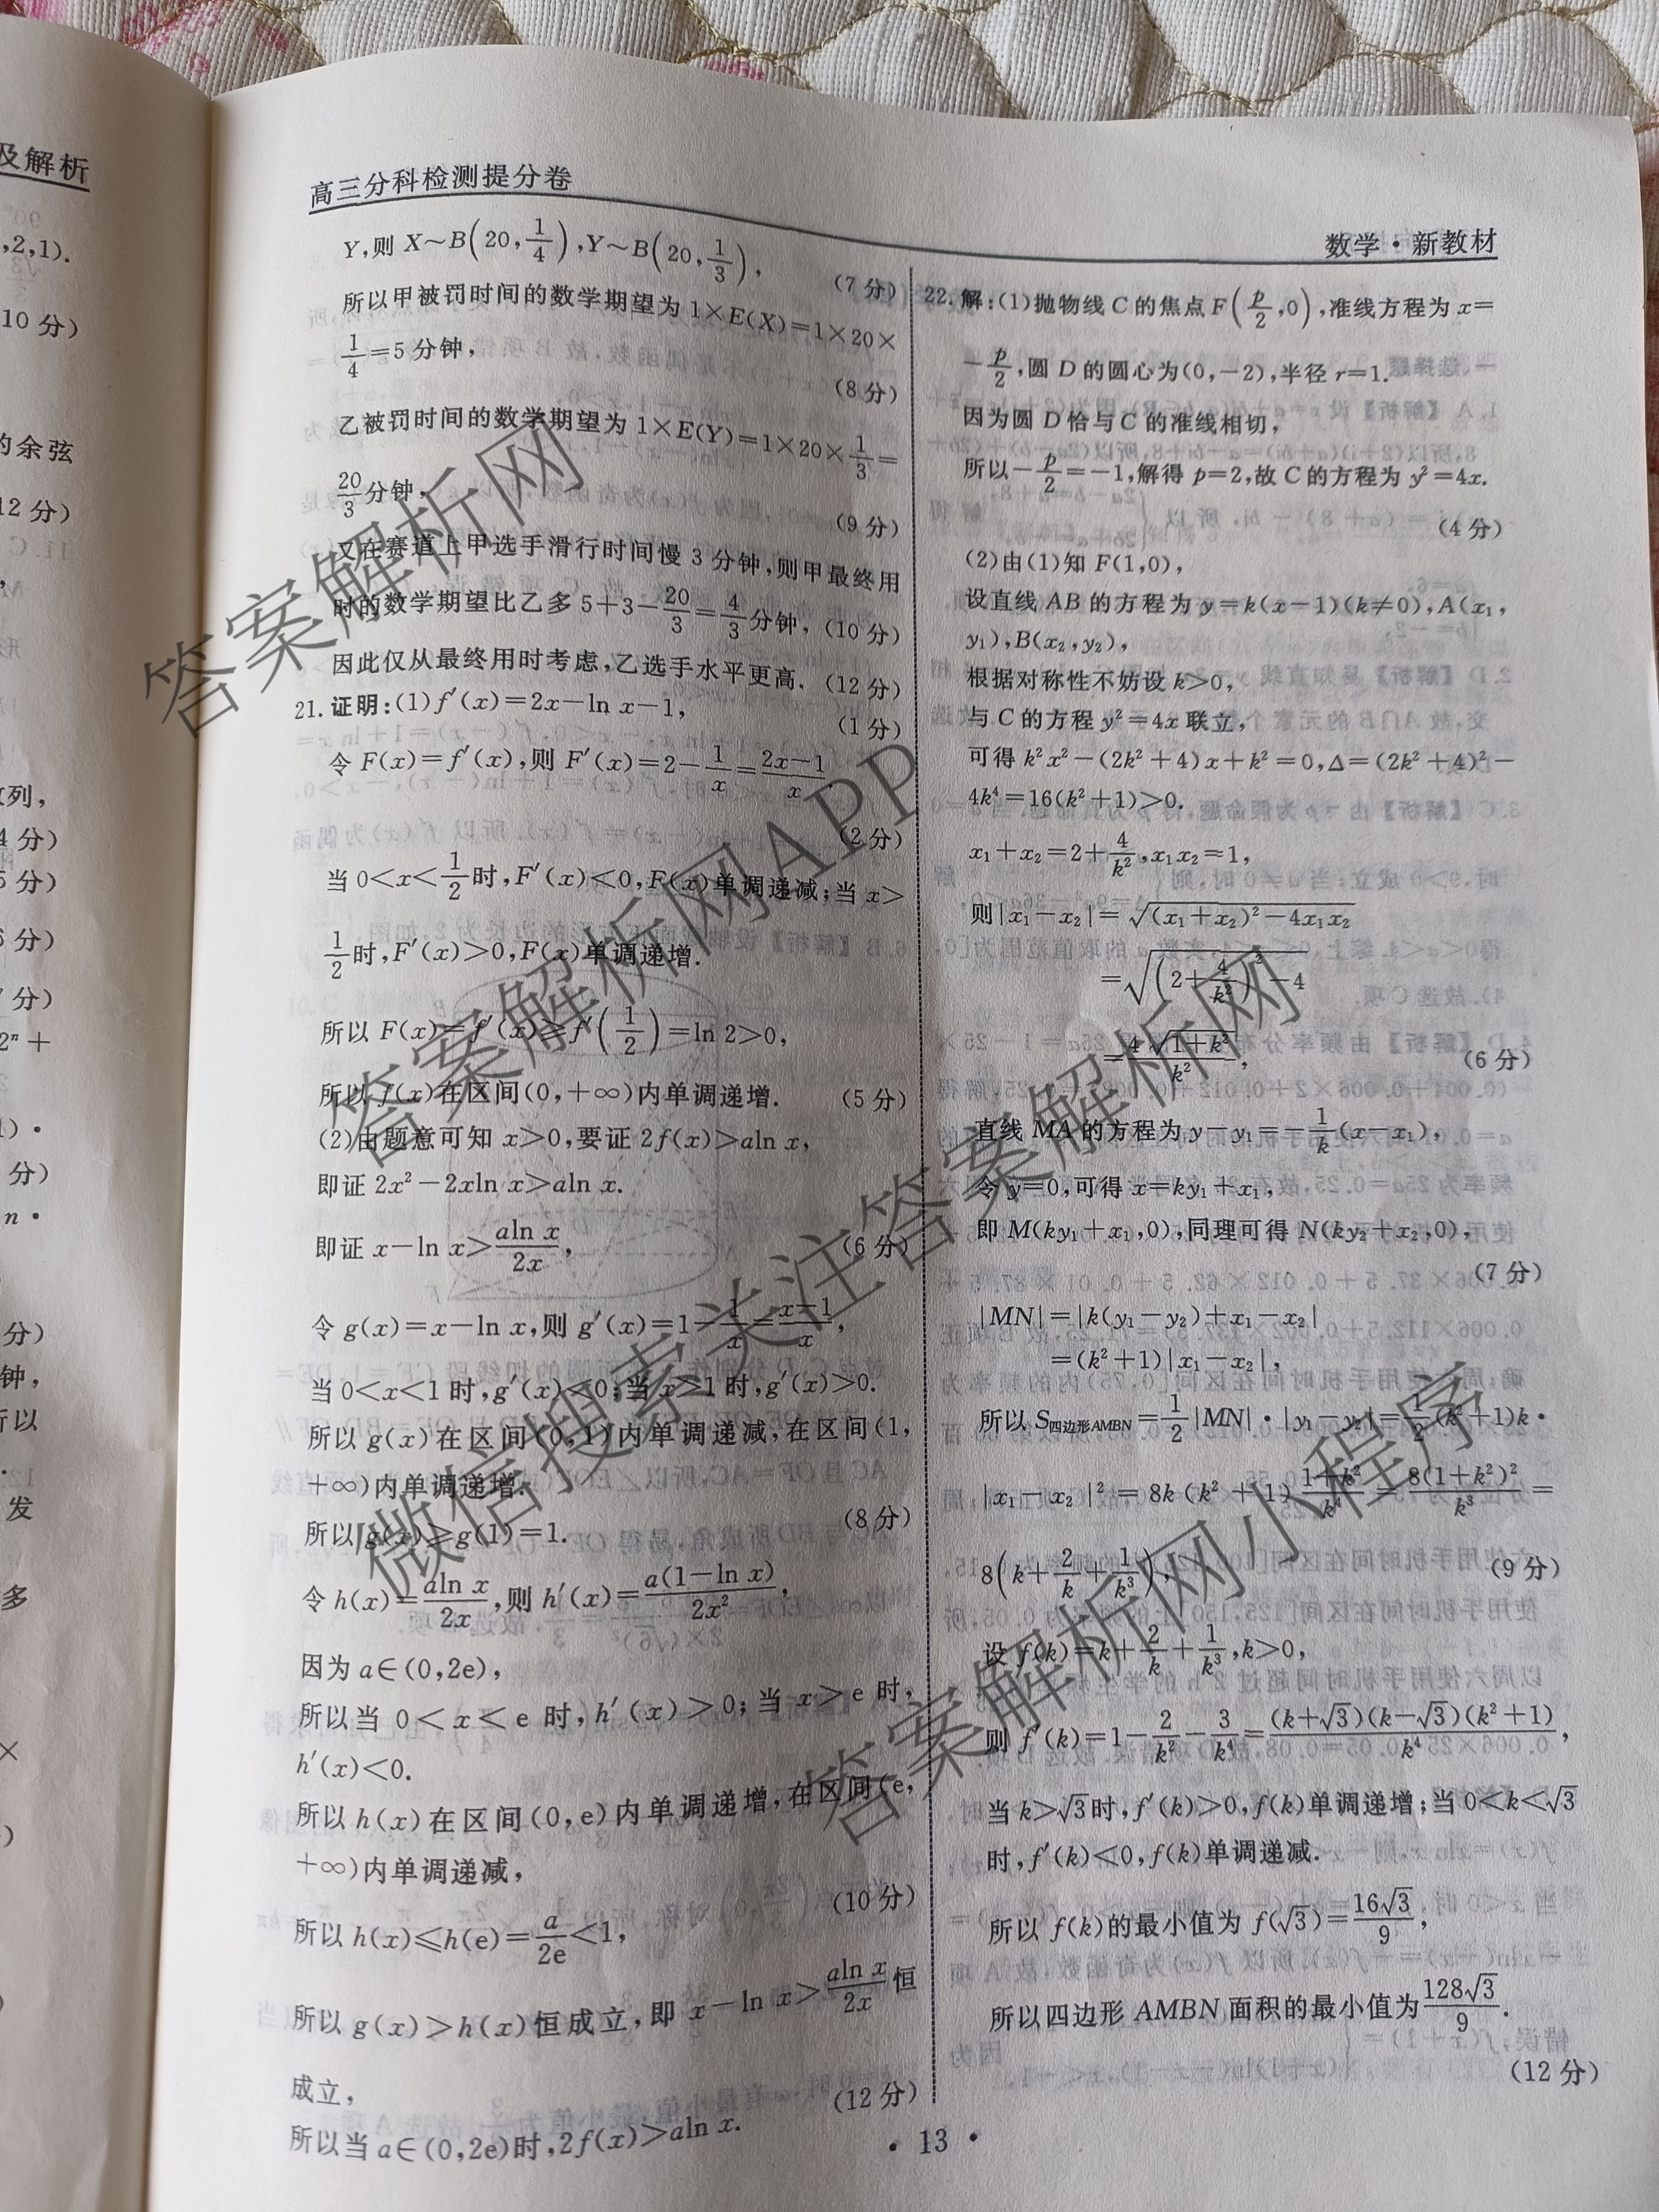 及解析
,2,1).
10 分)
的余弦
12 分)
数列,
4 分)
5 分)
6 分)
7 分)
2ⁿ+
分)
n·
分)
钟,
所以
发
多
×
高三分科检测提分卷
数学·新教材
Y,则 X~B(20,1/4),Y~B(20,1/3),
(7 分)
所以甲被罚时间的数学期望为 1×E(X)=1×20×
1/4=5 分钟,
(8 分)
乙被罚时间的数学期望为 1×E(Y)=1×20×1/3=
20/3分钟,
(9 分)
又在赛道上甲选手滑行时间慢 3 分钟,则甲最终用
时的数学期望比乙多 5+3-20/3=4/3分钟, (10 分)
因此仅从最终用时考虑,乙选手水平更高. (12 分)
21.证明:(1)f′(x)=2x-ln x-1,
(1 分)
令 F(x)=f′(x),则 F′(x)=2-1/x=(2x-1)/x.
(2 分)
当 0<x<1/2时,F′(x)<0,F(x)单调递减;当 x>
1/2时,F′(x)>0,F(x)单调递增.
所以 F(x)=f′(x)≥f′(1/2)=ln 2>0,
所以 f(x)在区间(0,+∞)内单调递增. (5 分)
(2)由题意可知 x>0,要证 2f(x)>aln x,
即证 2x²-2xln x>aln x.
即证 x-ln x>(aln x)/(2x), (6 分)
令 g(x)=x-ln x,则 g′(x)=1-1/x=(x-1)/x,
当 0<x<1 时,g′(x)<0;当 x>1 时,g′(x)>0.
所以 g(x)在区间(0,1)内单调递减,在区间(1,
+∞)内单调递增.
(8 分)
所以 g(x)≥g(1)=1.
令 h(x)=(aln x)/(2x),则 h′(x)=a(1-ln x)/(2x²),
因为 a∈(0,2e),
所以当 0<x<e 时,h′(x)>0;当 x>e 时,
h′(x)<0.
所以 h(x)在区间(0,e)内单调递增,在区间(e,
+∞)内单调递减,
(10 分)
所以 h(x)≤h(e)=a/(2e)<1,
所以 g(x)>h(x)恒成立,即 x-ln x>(aln x)/(2x)恒
成立,
(12 分)
所以当 a∈(0,2e)时,2f(x)>aln x.
22.解:(1)抛物线 C 的焦点 F(p/2,0),准线方程为 x=
-p/2,圆 D 的圆心为(0,-2),半径 r=1.
因为圆 D 恰与 C 的准线相切,
所以-p/2=-1,解得 p=2,故 C 的方程为 y²=4x.
(4 分)
(2)由(1)知 F(1,0),
设直线 AB 的方程为 y=k(x-1)(k≠0),A(x₁,
y₁),B(x₂,y₂),
根据对称性不妨设 k>0,
与 C 的方程 y²=4x 联立,
可得 k²x²-(2k²+4)x+k²=0,Δ=(2k²+4)²-
4k⁴=16(k²+1)>0.
x₁+x₂=2+4/k²,x₁x₂=1,
则|x₁-x₂|=√((x₁+x₂)²-4x₁x₂)
=√((2+4/k²)²-4)
=4√(1+k²)/k², (6 分)
直线 MA 的方程为 y-y₁=-1/k(x-x₁),
令 y=0,可得 x=ky₁+x₁,
即 M(ky₁+x₁,0),同理可得 N(ky₂+x₂,0),
(7 分)
|MN|=|k(y₁-y₂)+x₁-x₂|
=(k²+1)|x₁-x₂|,
所以 S四边形AMBN=1/2|MN|·|y₁-y₂|=1/2(k²+1)k·
|x₁-x₂|²=8k(k²+1)(1+k²)/k⁴=8(1+k²)²/k³=
8(k+2/k+1/k³), (9 分)
设 f(k)=k+2/k+1/k³,k>0,
则 f′(k)=1-2/k²-3/k⁴=(k+√3)(k-√3)(k²+1)/k⁴,
当 k>√3时,f′(k)>0,f(k)单调递增;当 0<k<√3
时,f′(k)<0,f(k)单调递减.
所以 f(k)的最小值为 f(√3)=16√3/9,
所以四边形 AMBN 面积的最小值为128√3/9.
(12 分)
·13·
答案解析网
答案解析网APP
微信搜索关注答案解析网
答案解析网小程序